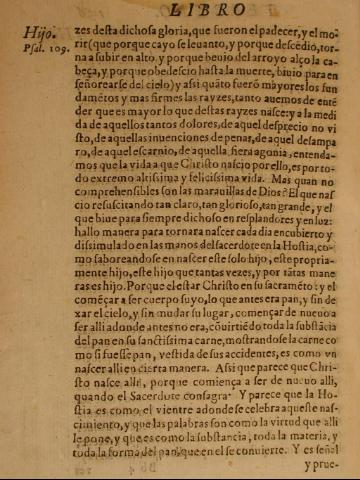 LIBRO
Hijo.
Psal. 109.
zes desta dichosa gloria, que fueron el padecer, y el mo-
rir (que porque cayo se leuanto, y porque descẽdio, tor-
na a subir en alto, y porque beuio del arroyo alço la ca-
beça, y porque obedescio hasta la muerte, biuio para en
señorearse del cielo) y assi quãto fuerõ mayores los fun
damẽtos y mas firmes las rayzes, tanto auemos de entẽ
der que es mayor lo que destas rayzes násce: y a la medi
da de aquellos tantos dolores, de aquel desprecio no vi
sto, de aquellas inuenciones de penas, de aquel desampa
ro, de aquel escarnio, de aquella fiera agonia, entenda-
mos que la vida a que Christo nascio por ello, es por to-
do extremo altissima y felicissima vida. Mas quan no
comprehensibles son las marauillas de Dios? El que nas
cio resuscitando tan claro, tan glorioso, tan grande, y el
que biue para siempre dichoso en resplandores y en luz:
hallo manera para tornar a nascer cada dia encubierto y
dissimulado en las manos del sacerdote en la Hostia, co-
mo saboreandose en nascer este solo hijo, este propria-
mente hijo, este hijo que tantas vezes, y por tãtas mane
ras es hijo. Porque el estar Christo en su sacramẽto: y el
comẽçar a ser cuerpo suyo, lo que antes era pan, y sin de
xar el cielo, y sin mudar su lugar, començar de nueuo a
ser alli adonde antes no era, cõuirtiẽdo toda la substãcia
del pan en su sanctissima carne, mostrandose la carne co
mo si fuesse pan, vestida de sus accidentes, es como vn
nascer alli en cierta manera. Assi que parece que Chri-
sto nasce alli, porque comiença a ser de nueuo alli,
quando el Sacerdote consagra. Y parece que la Ho-
stia es como el vientre adonde se celebra aqueste nas-
cimiento, y que las palabras son como la virtud que alli
le pone, y que es como la substancia, toda la materia, y
toda la forma del pan, que en el se conuierte. Y es señal
y prue-